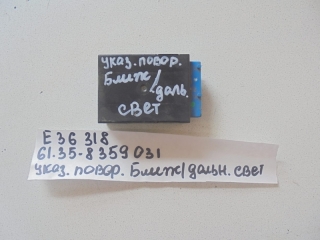 указ. повор.
Ближ/
даль.
свет
E 36 318
61.35-8359031
указ. повор. Ближ/дальн. свет